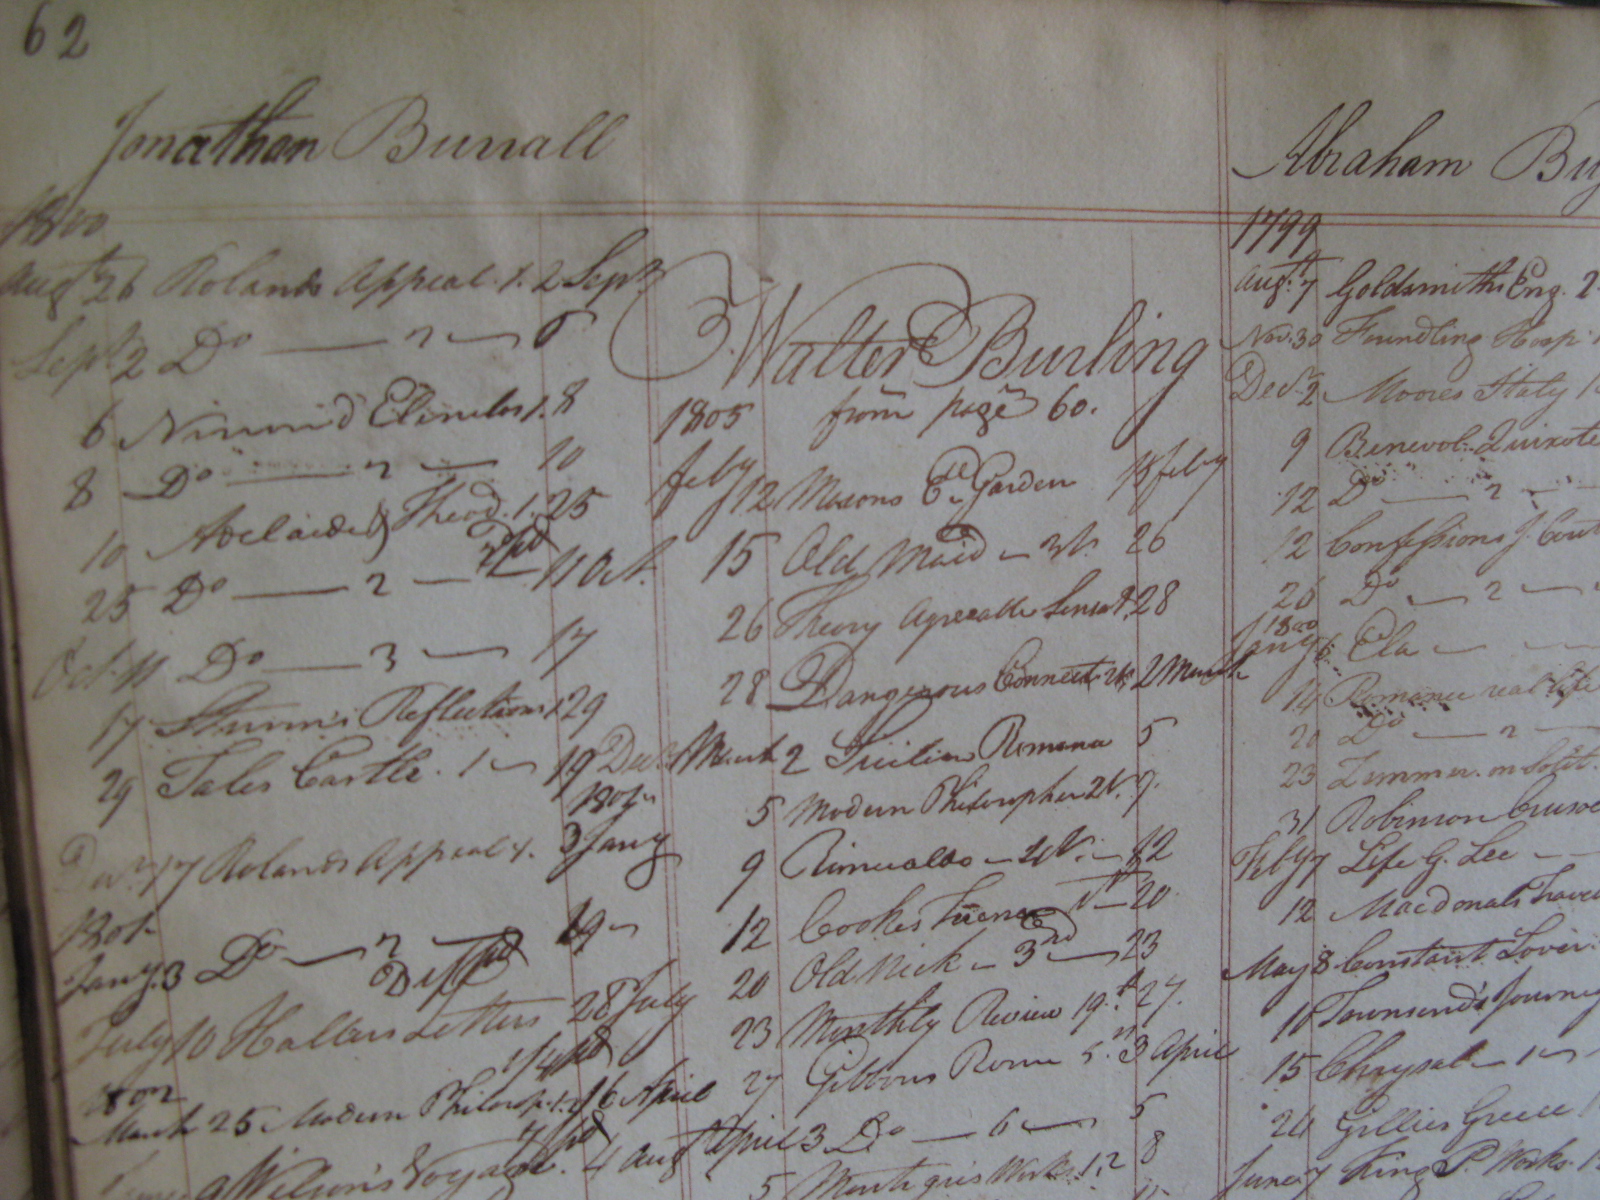 62
Jonathan Burrall
1800
Augt 26 Rolands Appeal 1. 2 Sept
Sept 2 Do — 2 — 6
6 1. 8
8 Do — 2 — 10
10 Adelaide & Theod. 1. 25
25 Do — 2 — 11 Oct.
Oct. 11 Do — 3 — 17
17 Sturms Reflections 1 29
29 Tales Castle. 1 — 19 Decr
1801
Decr 17 Rolands Appeal 1. 3 Jany
1801
Jany. 3 Do — 2 — 19
July 10 Hallers Letters 28 July
1802
March 25 Modern Philosop. 1. 2 16 April
9 Wilson's Voyage. 4 Augt
Walter Burling
from page 60.
1805
Feby 12 Masons Garden 15 Feby
15 Old Maid — 3 V. 26
26 Theory Agreeable Sensat. 28
28 Dangerous Connect. 2 March
March 2 Sicilian Romance 5
5 Modern Philosopher 2 V. 9.
9 Romualdo — 2 V. — 12
12 Cookes — 20
20 Old Nick — 3 — 23
23 Monthly Review 19. 27.
27 Gibbons Rome 5. 3 April
April 3 Do — 6 — 5
5 Works. 1. 2 8
Abraham
1799
Augt. 7 Goldsmiths Eng. 2
Nov. 30 Foundling Hosp.
Decr. 2 Moores Italy 1
9 Benevol. Quixote
12 Do — 2 —
12 Confessions J. Cout
26 Do — 2 —
1800
Jany 6 Ela —
14 Romance real life
20 Do — 2
23 Zimmer. on Solit.
31 Robinson Crusoe
Feby 7 Life G. Lee —
12 Macdonals Travels
May 8 Constant Lover
10 Townsend's Journey
15 Chrysal — 1 —
24 Gillies Greece 1
June 7 King P. Works. 1